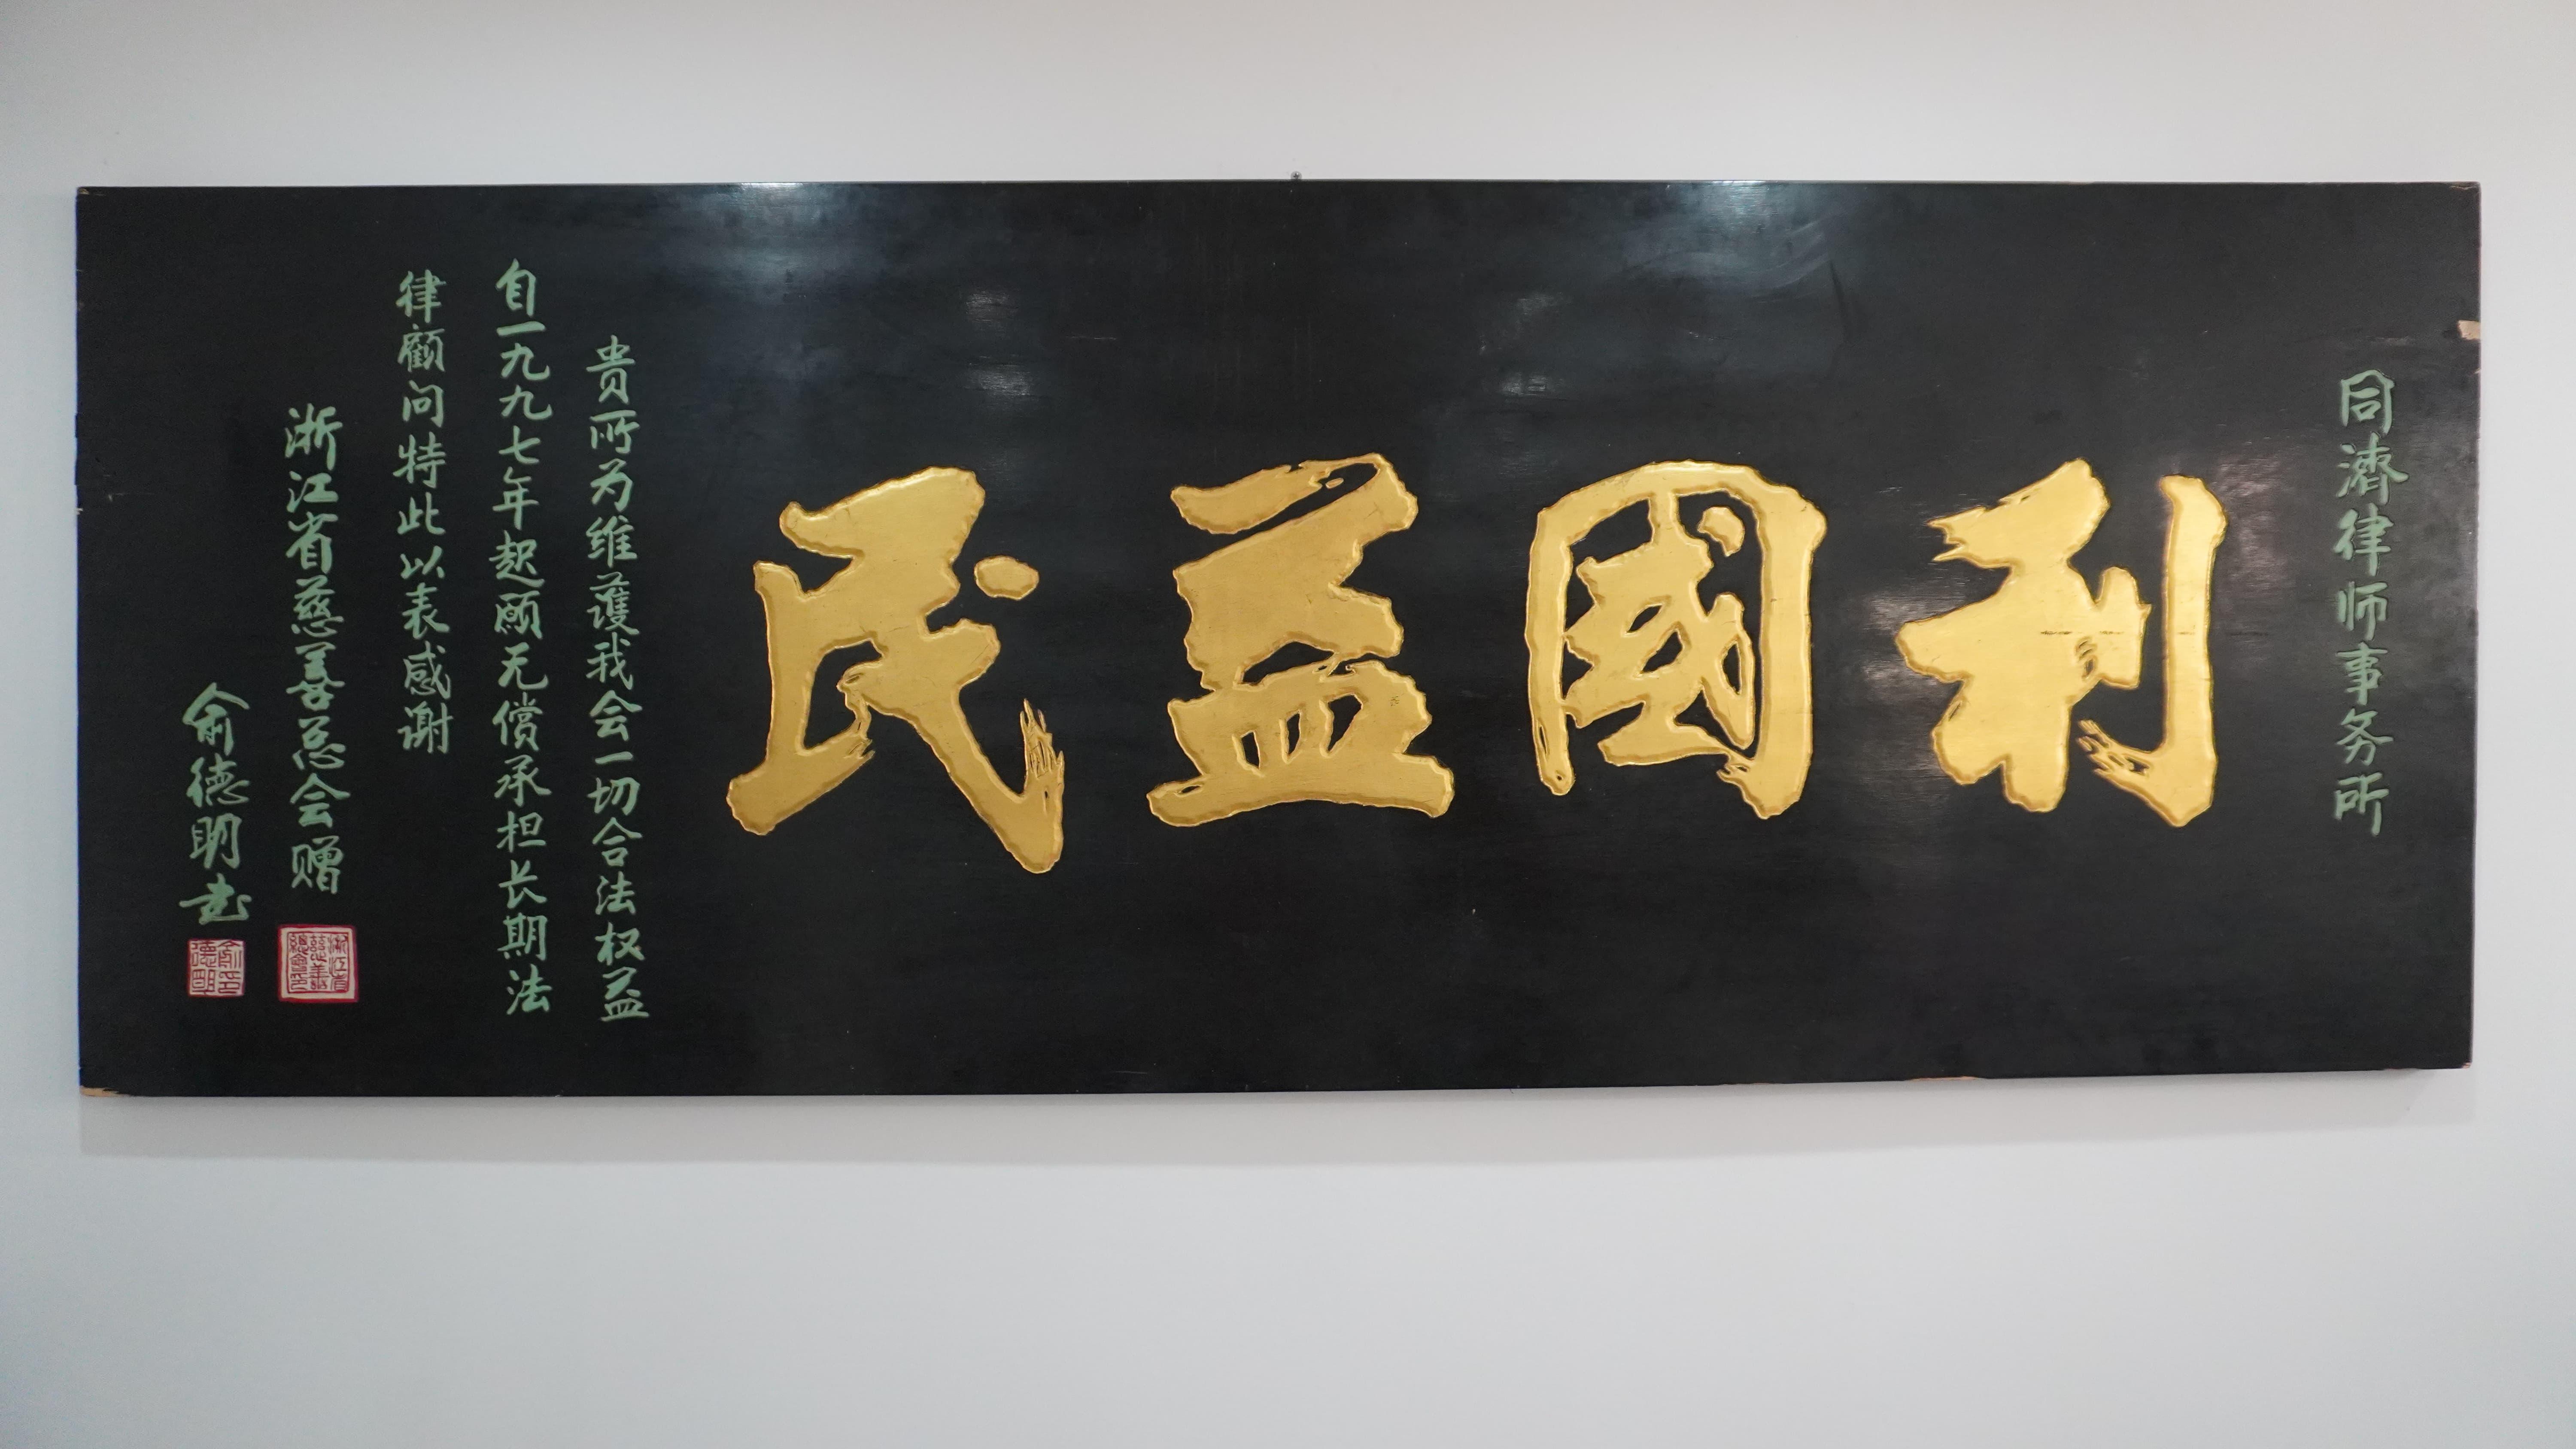 同濟律师事务所
利國益民
贵所为维護我会一切合法权益
自一九九七年起愿无偿承担长期法
律顾问特此以表感谢
浙江省慈善总会赠
俞德明书
浙江省慈善總會印
俞德明印